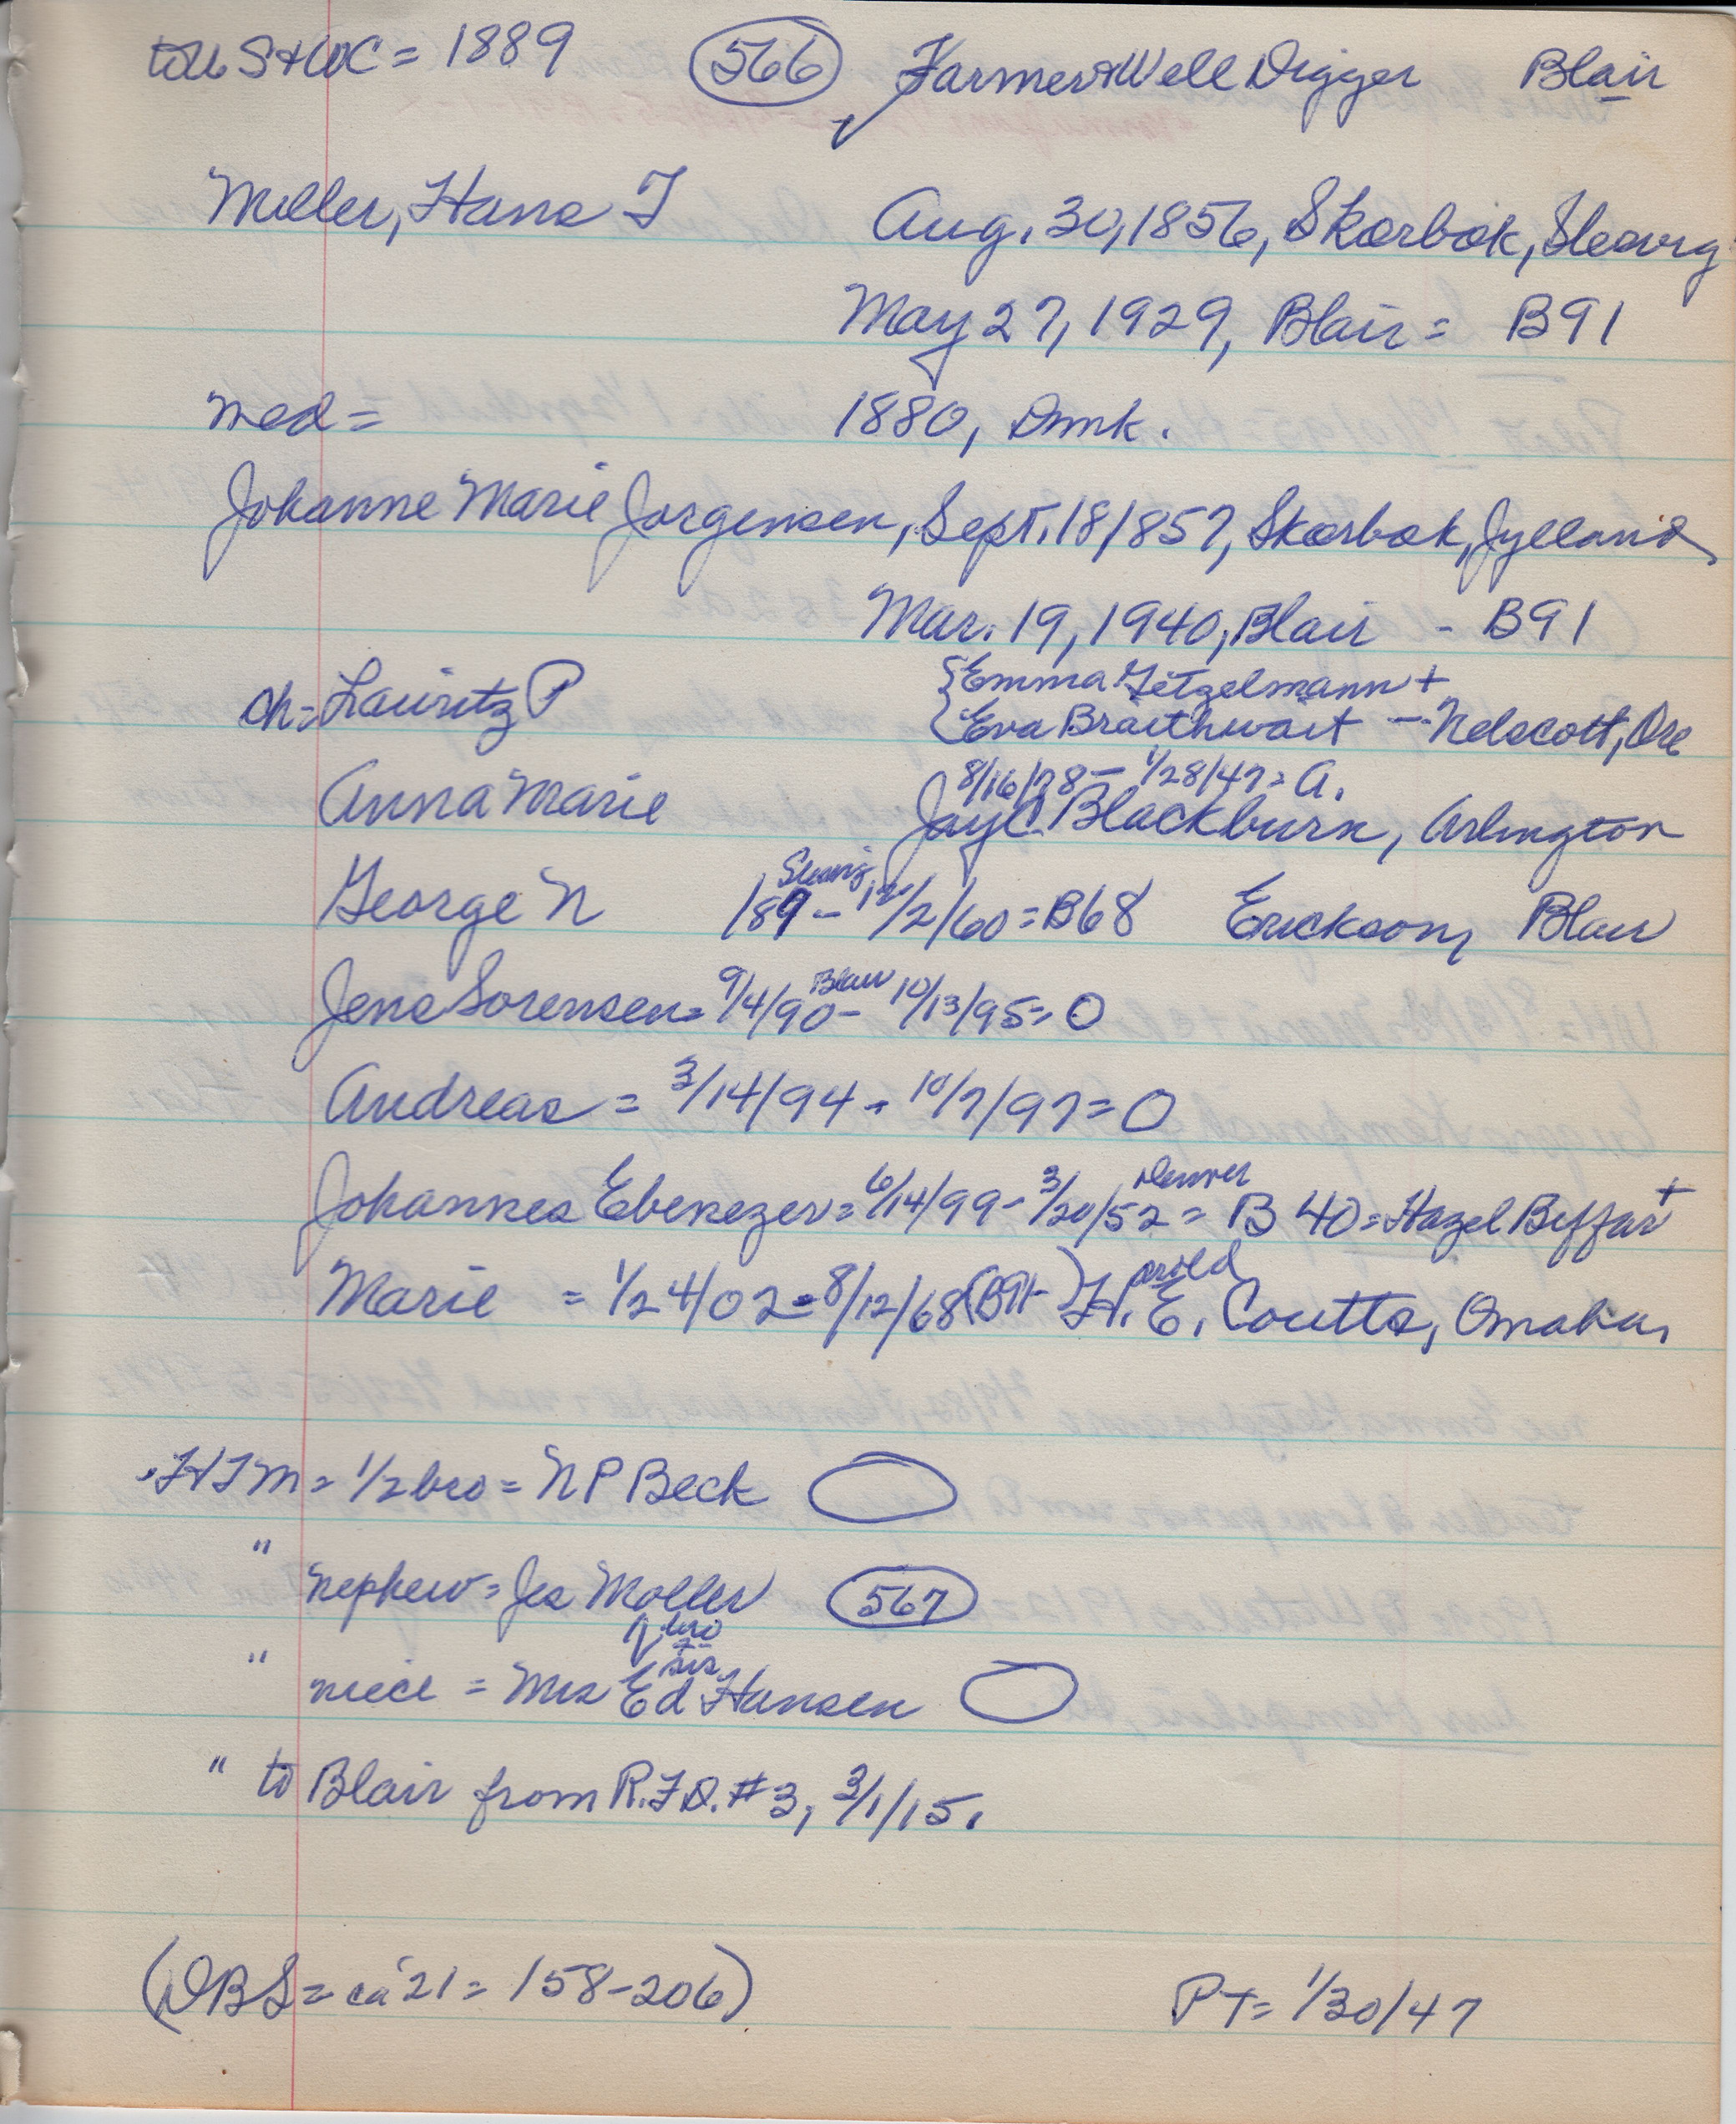 to US + WC = 1889 566 Farmer + Well Digger Blair
Miller, Hans J Aug. 30, 1856, Skærbæk, Slesvig
May 27, 1929, Blair = B91
med = 1880, Dmk.
Johanne Marie Jorgensen, Sept. 18 1857, Skærbæk, Jylland
Mar. 19, 1940, Blair - B91
{Emma Getzelmann +
ch = Lauritz P {Eva Braithwait — Nelscott, Ore
8/16/78 – 1/28/47 = A.
Anna Marie Jay C. Blackburn, Arlington
Slesvig
George N 189 – 12/2/60 = B68 Erickson, Blair
Blair
Jens Sorensen = 9/4/90 – 10/13/95 = 0
Andreas = 3/14/94 - 10/7/97 = 0
Denver
Johannes Ebenezer = 6/14/99 - 3/20/52 = B 40 = Hazel Beffar +
arold
Marie = 1/24/02 = 8/12/68 (B91-) H. E. Coutts, Omaha,
HJM = 1/2 bro = N P Beck
" nephew = Jes Moller 567
bro
sis
" niece = Mrs Ed Hansen
" to Blair from R.F.D. #3, 3/1/15.
(DBS = ca '21 = 158-206) PT = 1/30/47